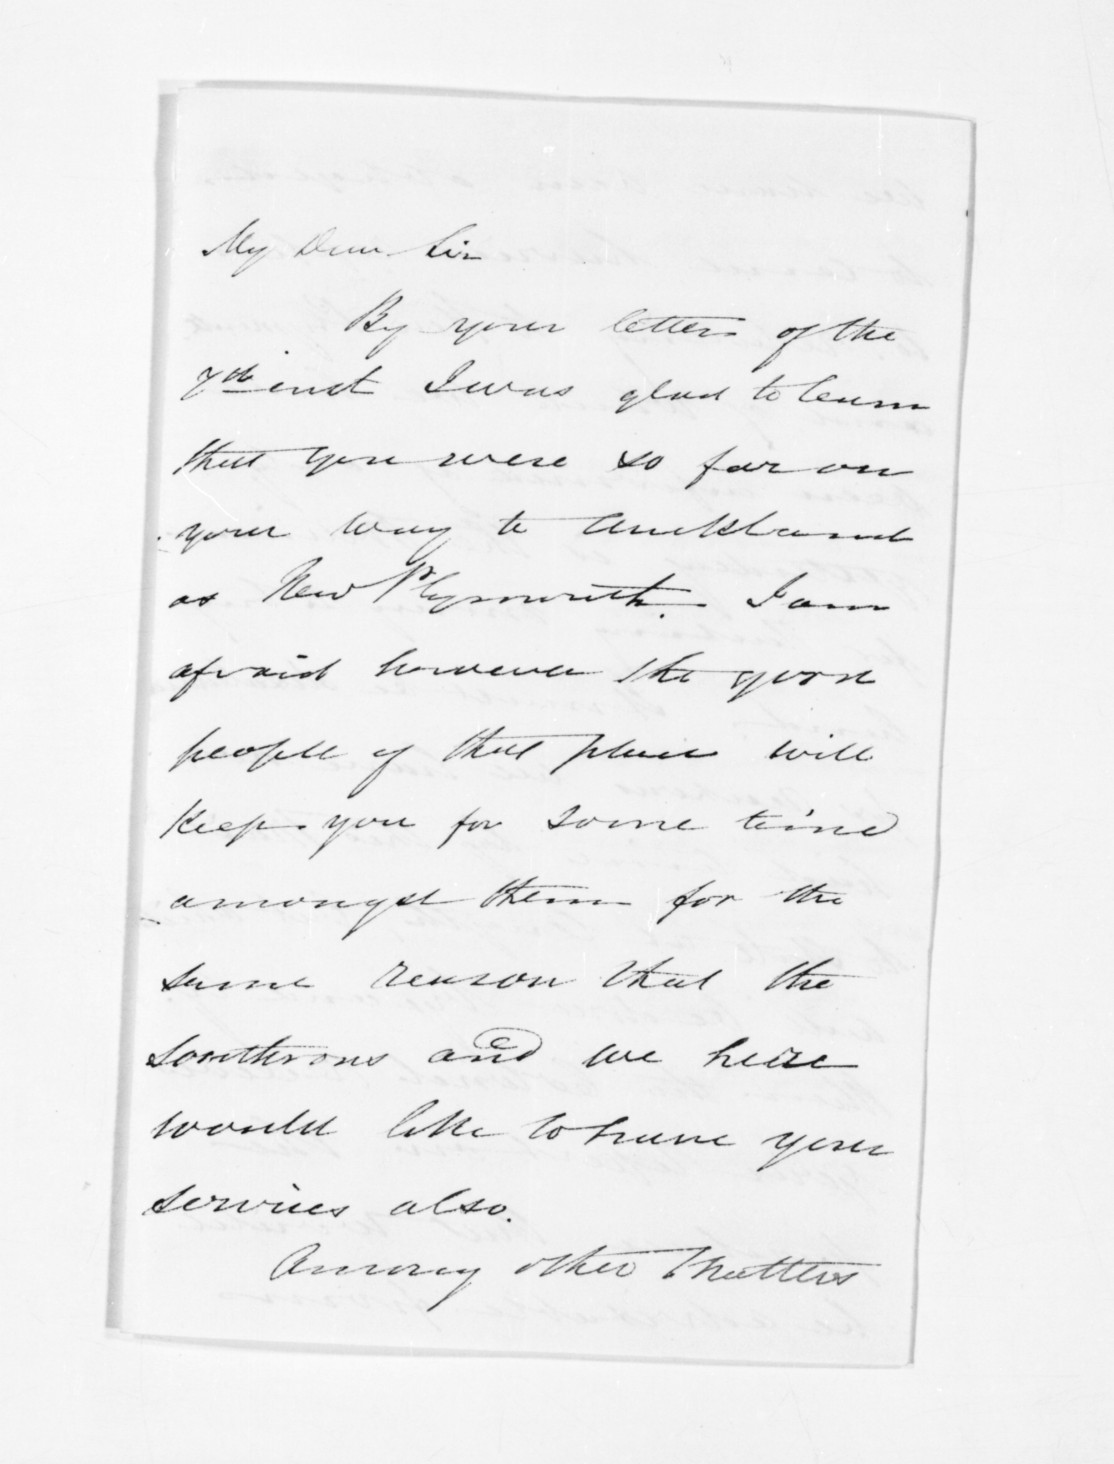 My Dear Sir
By your letters of the
7th inst I was glad to learn
that you were so far on
your way to Auckland
as New Plymouth. I am
afraid however the good
people of that place will
keep you for some time
amongst them for the
same reason that the
Southrons and we here
would like to have your
services also.
Among other Matters